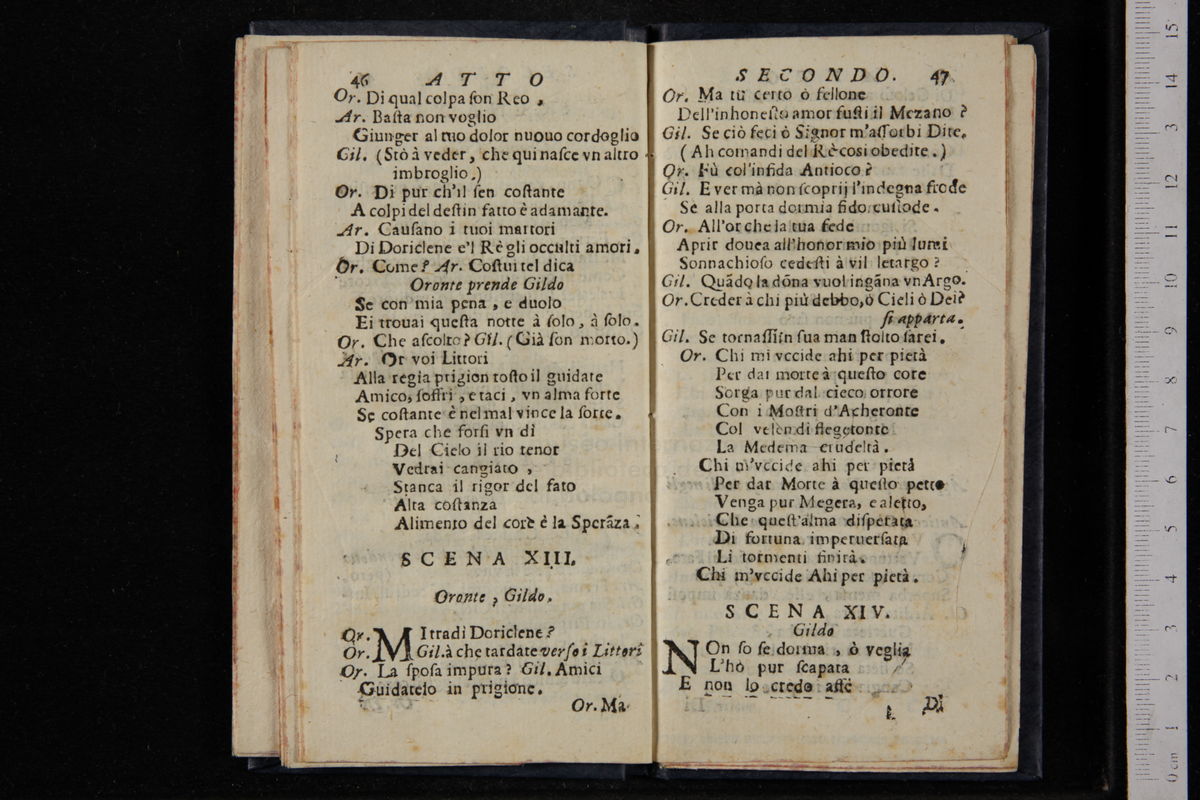 46 ATTO
Or. Di qual colpa ſon Reo,
Ar. Baſta non voglio
Giunger al tuo dolor nuouo cordoglio
Gil. (Stò à veder, che qui naſce vn altro
imbroglio.)
Or. Di pur ch'il ſen coſtante
A colpi del deſtin fatto è adamante.
Ar. Cauſano i tuoi martori
Di Doriclene e'l Rè gli occulti amori.
Or. Come? Ar. Coſtui tel dica
Oronte prende Gildo
Se con mia pena, e duolo
Ei trouai queſta notte à ſolo, à ſolo.
Or. Che aſcolto? Gil. (Già ſon morto.)
Ar. Or voi Littori
Alla regia prigion toſto il guidate
Amico, ſoffri, e taci, vn alma forte
Se coſtante è nel mal vince la ſorte.
Spera che forſi vn dì
Del Cielo il rio tenor
Vedrai cangiato,
Stanca il rigor del fato
Alta coſtanza
Alimento del corè è la Sperãza.
SCENA XIII.
Oronte, Gildo.
Or. MI tradì Doriclene?
Or. Gil. à che tardate verſo i Littori
Or. La ſpoſa impura? Gil. Amici
Guidatelo in prigione.
Or. Ma
SECONDO. 47
Or. Ma tù certo ò fellone
Dell'inhoneſto amor fuſti il Mezano?
Gil. Se ciò feci ò Signor m'aſſorbi Dite.
(Ah comandi del Rè cosi obedite.)
Or. Fù col'infida Antioco?
Gil. E ver mà non ſcoprij l'indegna frode
Se alla porta dormia fido cuſtode.
Or. All'or che la tua fede
Aprir douea all'honor mio più lumi
Sonnachioſo cedeſti à vil letargo?
Gil. Quãdo la dõna vuol ingãna vn Argo.
Or. Creder à chi più debbo, ò Cieli ò Dei?
ſi apparta.
Gil. Se tornaſſi in ſua man ſtolto ſarei.
Or. Chi mi vccide ahi per pietà
Per dar morte à queſto core
Sorga pur dal cieco orrore
Con i Moſtri d'Acheronte
Col velen di flegetonte
La Medema crudeltà.
Chi m'vccide ahi per pietà
Per dar Morte à queſto petto
Venga pur Megera, e aletto,
Che queſt'alma diſperata
Di fortuna imperuerſata
Li tormenti finirà.
Chi m'vccide Ahi per pietà.
SCENA XIV.
Gildo
NOn ſo ſe dorma, ò veglia
L'hò pur ſcapata
E non lo credo affè
Di